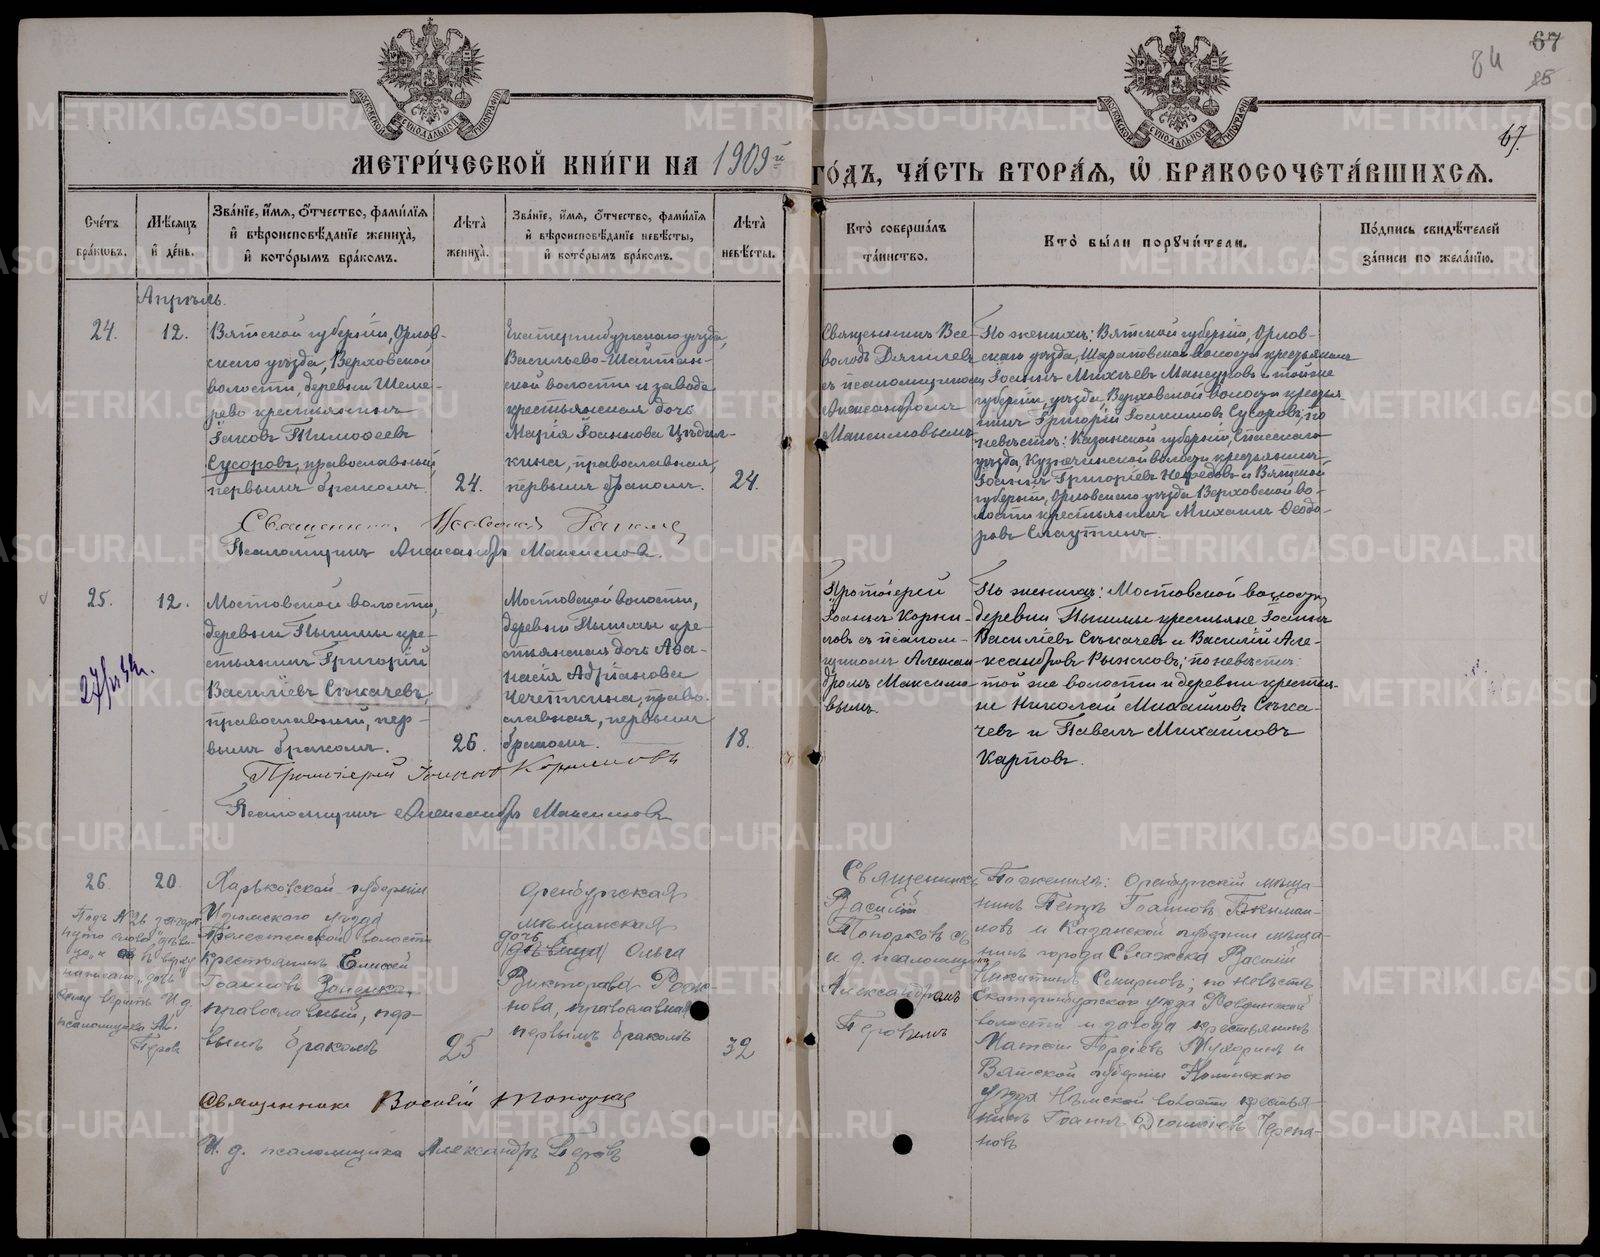 67
84
85
67.
МОСКОВСКОЙ СѴНОДАЛЬНОЙ ТИПОГРАФІИ
МОСКОВСКОЙ СѴНОДАЛЬНОЙ ТИПОГРАФІИ
МЕТРИ́ЧЕСКОЙ КНИ́ГИ НА 1909й ГО́ДЪ, ЧА́СТЬ ВТОРА́Я, Ѿ БРАКОСОЧЕТА́ВШИХСЯ.
Сче́тъ бра́кѡвъ.
Мѣ́сяцъ и҆ де́нь.
Зва́нїе, и҆́мя, ѻ҆́тчество, фами́лїя и҆ вѣроисповѣ́данїе жениха̀, и҆ кото́рымъ бра́комъ.
Лѣ́та жениха̀.
Зва́нїе, и҆́мя, ѻ҆́тчество, фами́лїя и҆ вѣроисповѣ́данїе невѣ́сты, и҆ кото́рымъ бра́комъ.
Лѣ́та невѣ́сты.
Кто̀ соверша́лъ та́инство.
Кто̀ бы́ли поручи́тели.
По́дпись свидѣ́телей за́писи по жела́нїю.
Апрѣль.
24.
12.
Вятской губерніи, Орлов-
скаго уѣзда, Верховской
волости, деревни Шеме-
рево крестьянинъ
Іаковъ Тимоѳеевъ
Сусоровъ, православный,
первымъ бракомъ.
24.
Екатеринбургскаго уѣзда,
Васильево-Шайтан-
ской волости и завода
крестьянская дочь
Марія Іоаннова Цѣдил-
кина, православная,
первымъ бракомъ.
24.
Священникъ Все-
володъ
съ псаломщикомъ
Александромъ
Максимовымъ
По женихѣ: Вятской губерніи, Орлов-
скаго уѣзда, волости крестьянинъ
Іоаннъ Михѣевъ Мансуровъ и той же
губерніи, уѣзда, Верховской волости крестья-
нинъ Григорій Іоакимовъ Сусоровъ; по
невѣстѣ: Казанской губерніи, Спасскаго
уѣзда, Кузнечихинской волости крестьянинъ
Іоаннъ Григоріевъ и Вятской
губерніи, Орловскаго уѣзда Верховской во-
лости крестьянинъ Михаилъ Ѳеодо-
ровъ
Священникъ Всеволодъ
Псаломщикъ Александръ Максимовъ.
25.
12.
Мостовской волости,
деревни Пышмы кре-
стьянинъ Григорій
Василіевъ Сѣкачевъ,
православный, пер-
вымъ бракомъ.
26.
Мостовской волости,
деревни Пышмы кре-
стьянская дочь Аѳа-
насія Адріанова
Чепчкина, право-
славная, первымъ
бракомъ.
18.
Протоіерей
Іоаннъ Корни-
ловъ съ псалом-
щикомъ Алексан-
дромъ Максимо-
вымъ.
По женихѣ: Мостовской волости,
деревни Пышмы крестьяне Іоаннъ
Василіевъ Сѣкачевъ и Василій Але-
ксандровъ Рыжковъ; по невѣстѣ:
той же волости и деревни крестья-
не Николай Михаиловъ Сѣка-
чевъ и Павелъ Михаиловъ
Карповъ.
Протоіерей Іоаннъ Корниловъ
Псаломщикъ Александръ Максимовъ
26.
20.
Харьковской губерніи
Изюмскаго уѣзда
волости
крестьянинъ Елисей
Іоанновъ Заненко,
православный, пер-
вымъ бракомъ
25
Оренбургская
мѣщанская
дочь
(дѣвица) Ольга
Викторова
православная
первымъ бракомъ
32
Священникъ
Василій
Топорковъ съ
и. д. псаломщика
Александромъ
Перовымъ
По женихѣ: Оренбургскій мѣща-
нинъ Петръ Іоанновъ
и Казанской губерніи мѣща-
нинъ города Свіяжска Василій
Никитинъ Смирновъ; по невѣстѣ
Екатеринбургскаго уѣзда Ревдинской
волости и завода крестьянинъ
Гордіевъ Мухоринъ и
Вятской губерніи Нолинскаго
уѣзда Нѣмской волости крестья-
нинъ Іоаннъ Черепа-
новъ
Священникъ Василій Топорковъ
И. д. псаломщика Александръ Перовъ
METRIKI.GASO-URAL.RU